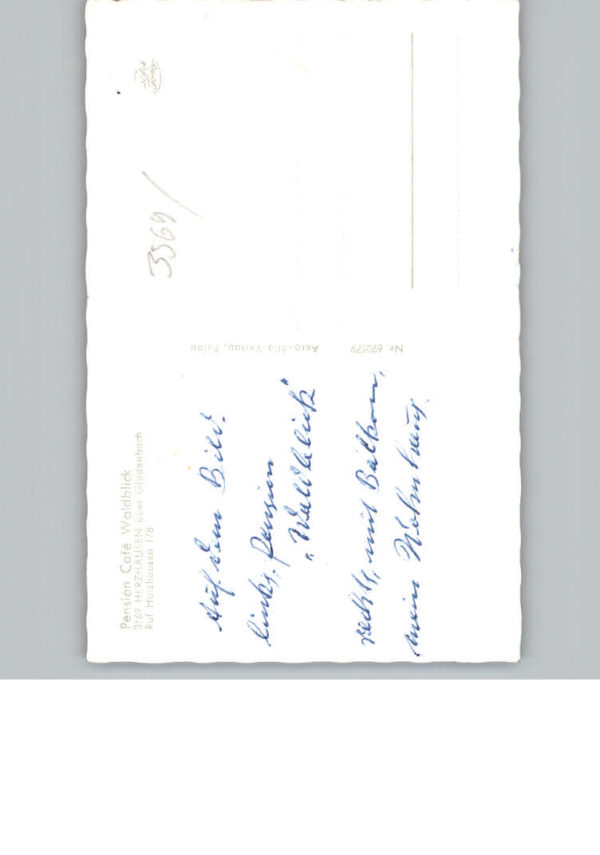 Pension Café Waldblick
3569 HERZHAUSEN über Gladenbach
Ruf Holzhausen 378
Auf dem Bild.
links, Pension
„Waldblick"
rechts, mit Balkon,
mein Wohnhaus.
Nr. 690579
Aero-Bild-Verlag, Fulda
3569/